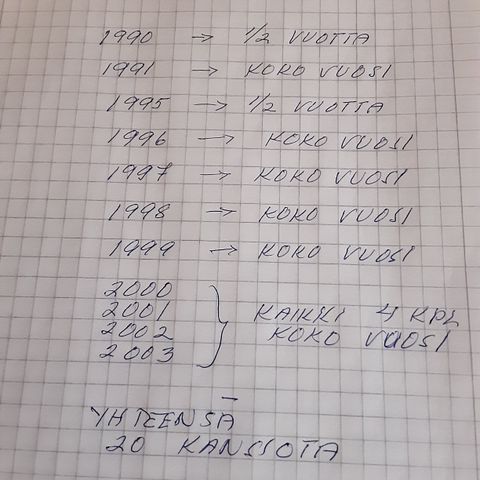 1990 → 1/2 VUOTTA
1991 → KOKO VUOSI
1995 → 1/2 VUOTTA
1996 → KOKO VUOSI
1997 → KOKO VUOSI
1998 → KOKO VUOSI
1999 → KOKO VUOSI
2000
2001 KAIKKI 4 KPL
2002 KOKO VUOSI
2003
YHTEENSÄ
20 KANSIOTA